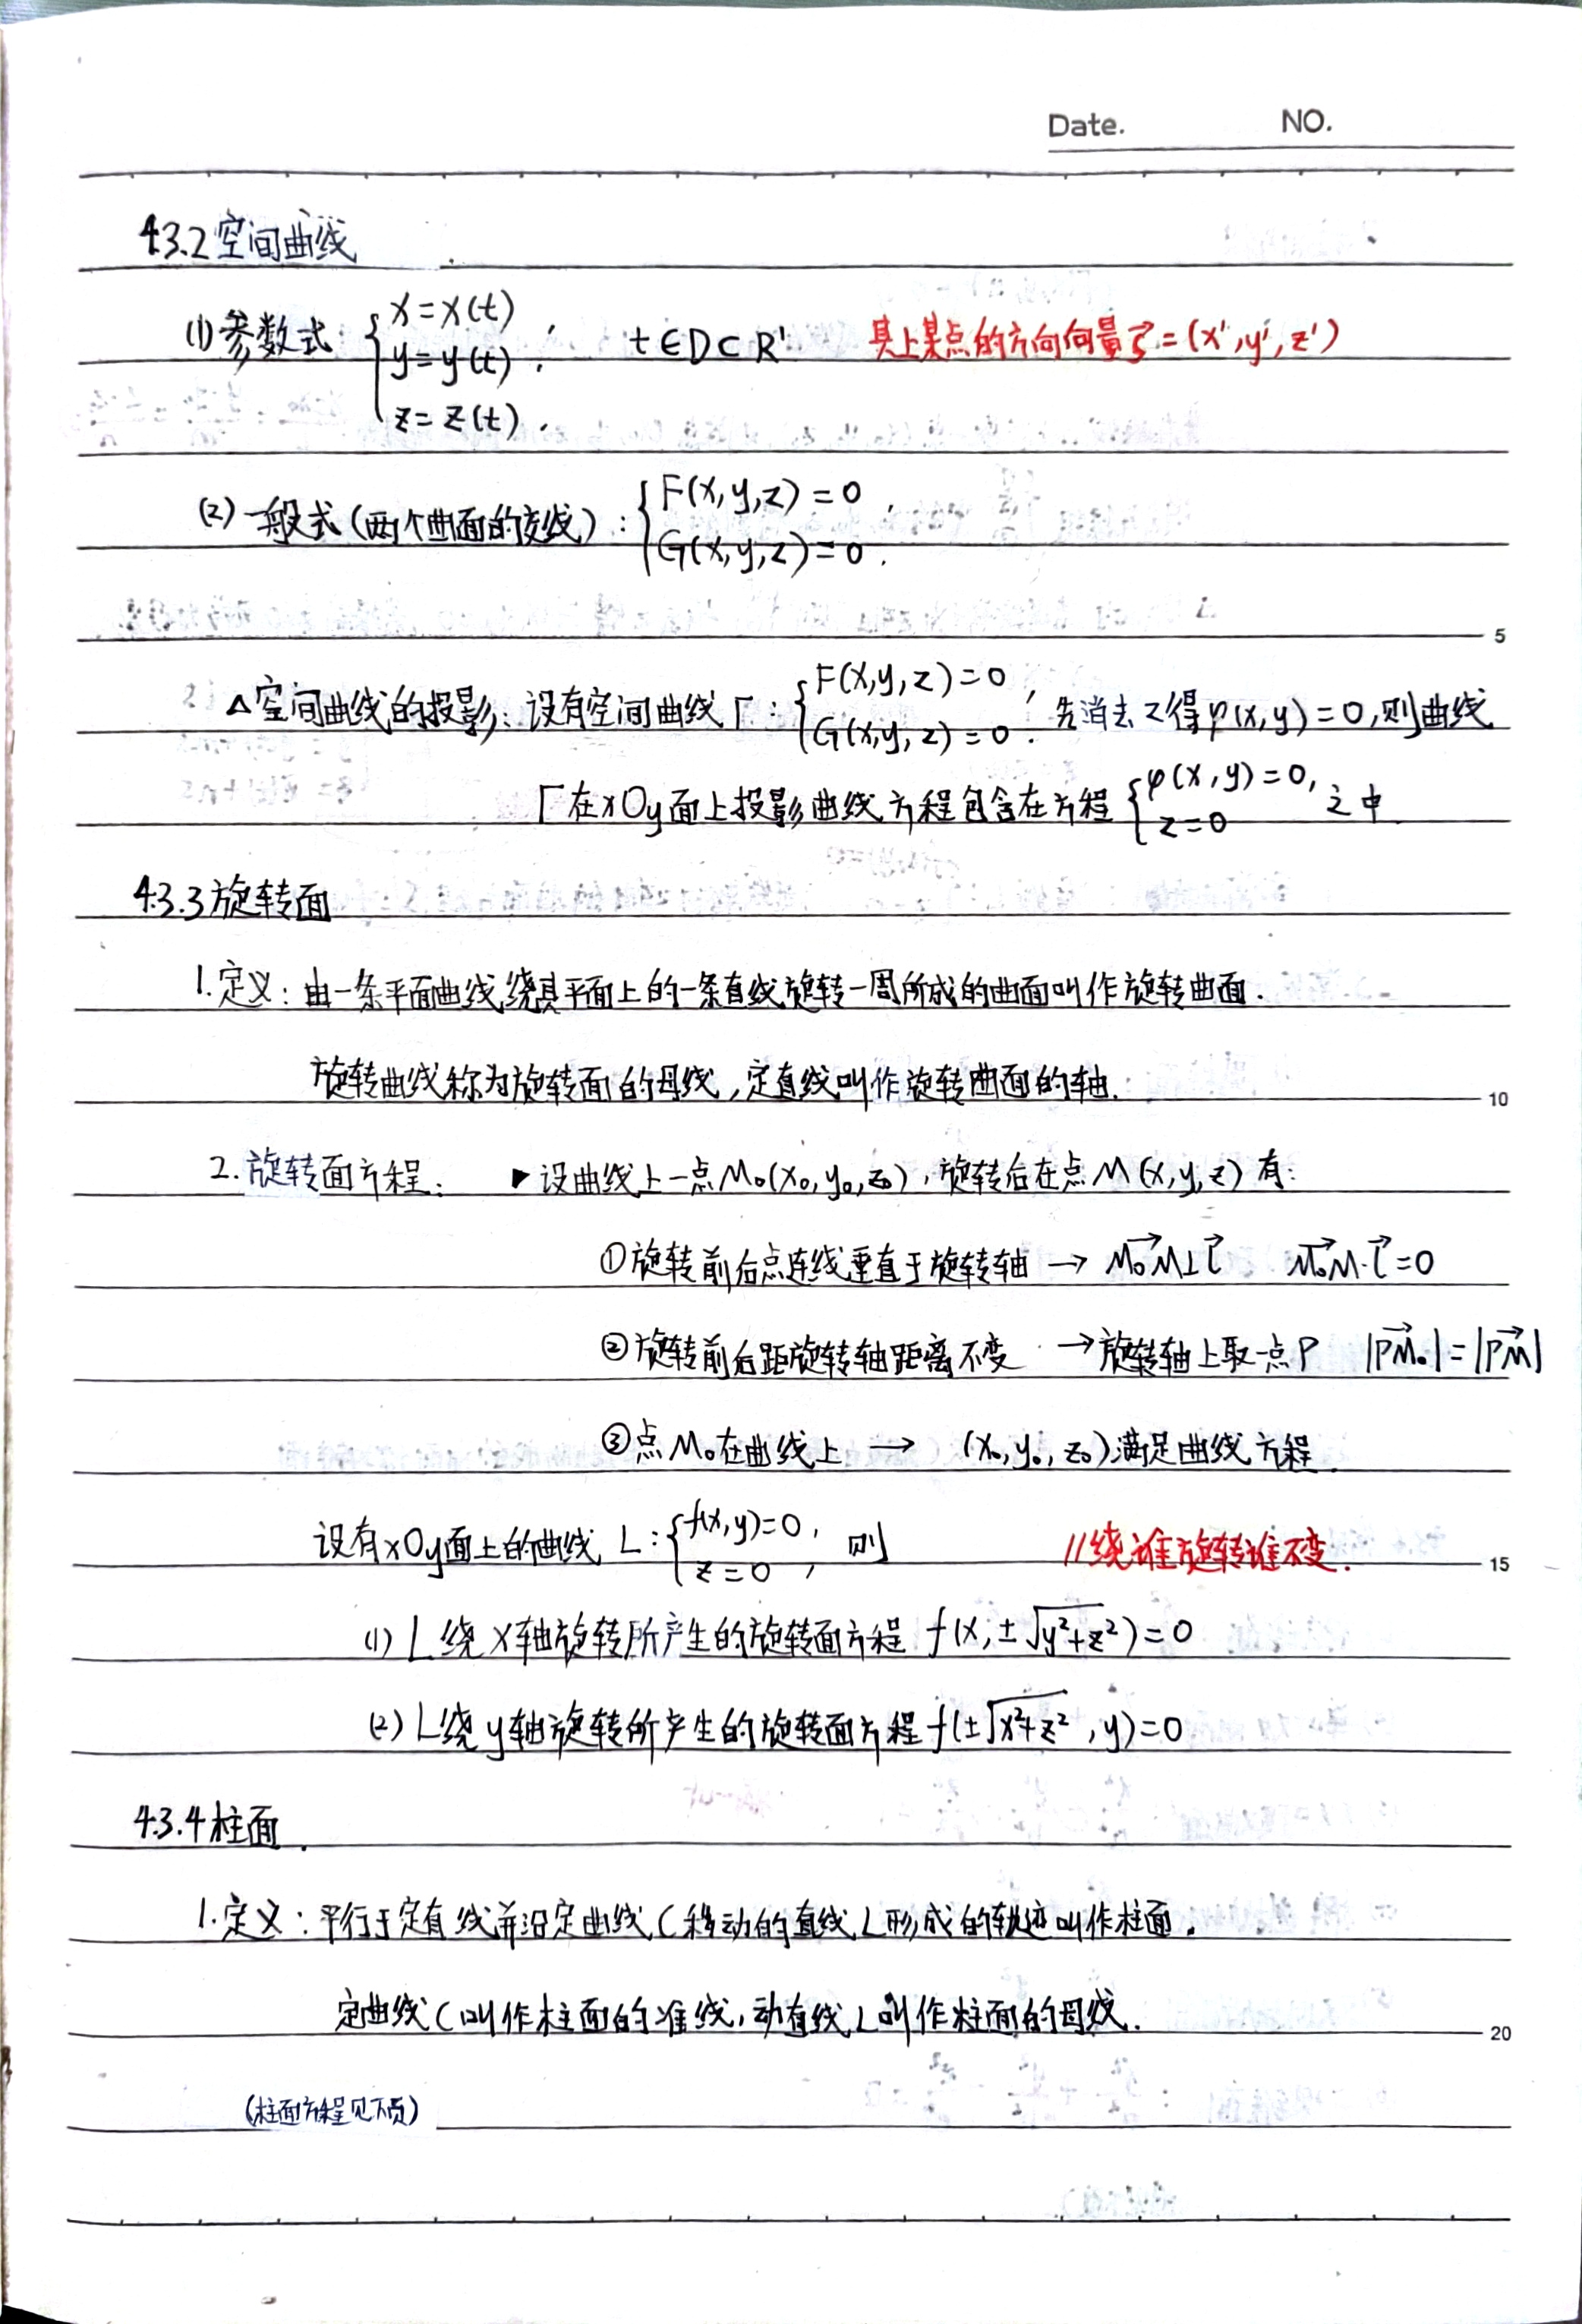 Date. NO.
4.3.2 空间曲线
(1) 参数式: { x=x(t), y=y(t), z=z(t). t∈D⊂R¹ 其上某点的方向向量 s⃗=(x',y',z')
(2) 一般式(两个曲面的交线): { F(x,y,z)=0, G(x,y,z)=0.
5
△空间曲线的投影: 设有空间曲线Γ: { F(x,y,z)=0, G(x,y,z)=0. 先消去z得φ(x,y)=0,则曲线
Γ在xOy面上投影曲线方程包含在方程 { φ(x,y)=0, z=0 之中.
4.3.3 旋转面
1.定义: 由一条平面曲线绕其平面上的一条直线旋转一周所成的曲面叫作旋转曲面.
旋转曲线称为旋转面的母线,定直线叫作旋转曲面的轴.
10
2.旋转面方程: ▶设曲线上一点M₀(x₀,y₀,z₀),旋转后在点M(x,y,z)有:
①旋转前后点连线垂直于旋转轴 → M₀M⃗⊥l⃗ M₀M⃗·l⃗=0
②旋转前后距旋转轴距离不变 →旋转轴上取一点P |PM₀⃗|=|PM⃗|
③点M₀在曲线上 → (x₀,y₀,z₀)满足曲线方程.
设有xOy面上的曲线 L: { f(x,y)=0, z=0, 则 //绕谁旋转谁不变.
15
(1) L绕x轴旋转所产生的旋转面方程 f(x,±√(y²+z²))=0
(2) L绕y轴旋转所产生的旋转面方程 f(±√(x²+z²),y)=0
4.3.4 柱面.
1.定义: 平行于定直线并沿定曲线C移动的直线L形成的轨迹叫作柱面.
定曲线C叫作柱面的准线,动直线L叫作柱面的母线.
20
(柱面方程见下页)